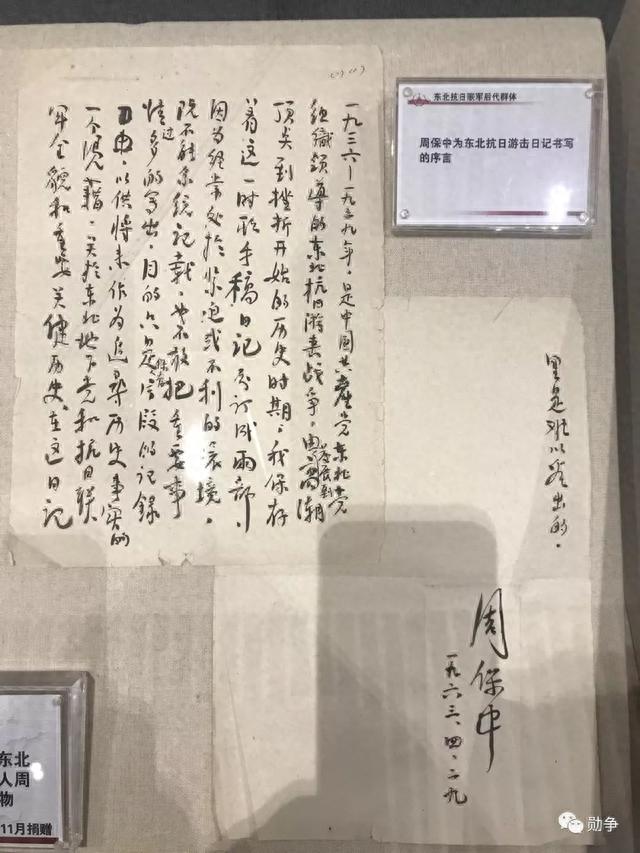 东北抗日联军后代群体
周保中为东北抗日游击日记书写
的序言
一九三六—一九三九年,是中國共產党东北党
组織領導的东北抗日游击战争,由发展到高潮
顶点到挫折开始的历史时期。我保存
着这一时期手稿"日记"订成两部,
因为经常处於紧迫或不利的环境,
既不能系統记载,也不敢把重要事
情过多的写出,目的只是保存段的记錄
以供将来作为追尋历史事实的
一个凭藉。关於东北地下党和抗日联
军全貌和重要关健历史,在这日记
里是难以看出的。
周保中
一九六三、四、二九
东北
人周
物
11月捐赠
勋争